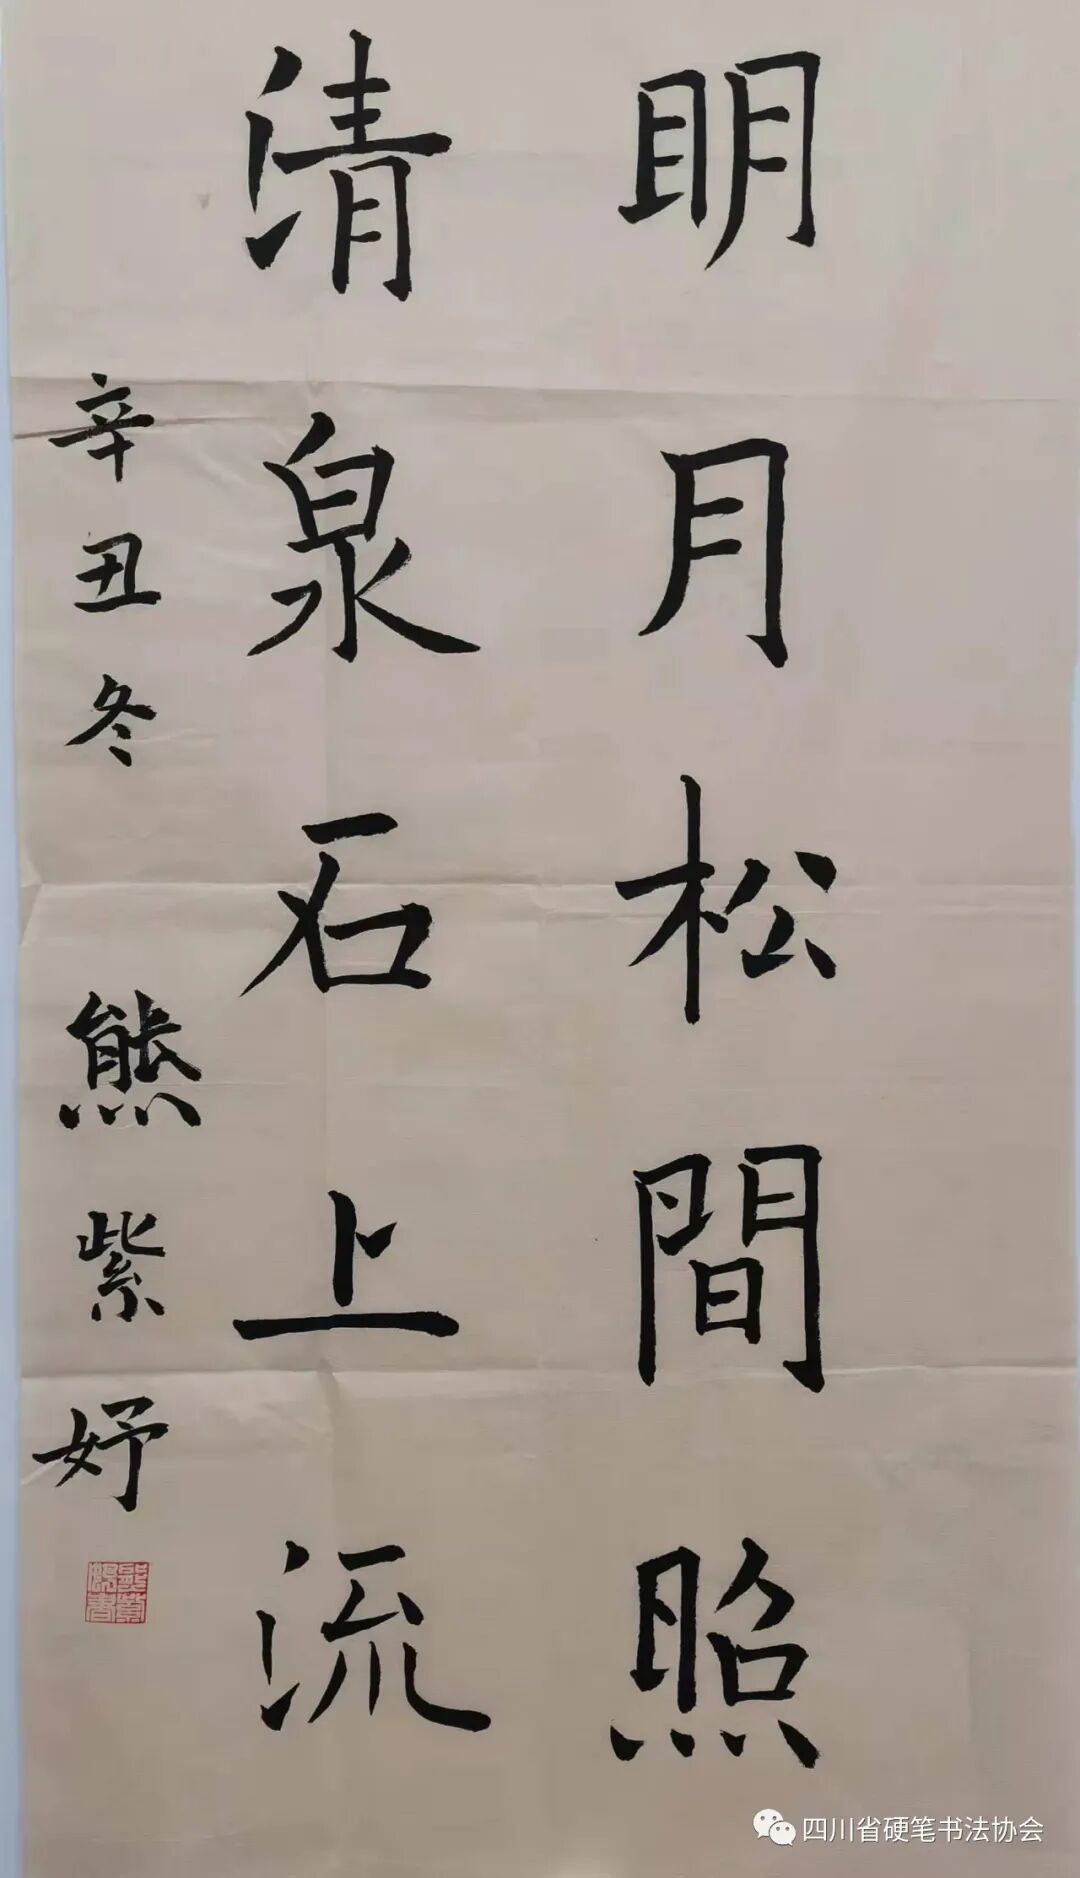 明月松間照
清泉石上流
辛丑冬 熊紫妤
四川省硬笔书法协会